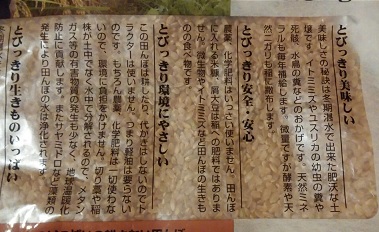 とびっきり美味しい
美味しさの秘訣は冬期湛水で出来た肥沃な土
壌です。イトミミズやユスリカの幼虫の糞や
死骸、水鳥の糞などのおかげです。天然ミネ
ラルも毎年補給します。微量ですが酵素や天
然ニガリも稲に散布します。
とびっきり安全・安心
農薬、化学肥料はいっさい使いません。田んぼ
に入れる米糠、屑大豆は稲への肥料ではありま
せん。微生物やイトミミズなど田んぼの生きも
のの食べ物です。
とびっきり環境にやさしい
この田んぼは耕したり、代かきはしないのでト
ラクターは使いません。つまり軽油は要らない
のです。もちろん農薬、化学肥料は一切使わな
いので、環境に負担をかけません。切り藁や稲
株が土中でなく水中で分解されるので、メタン
ガス等の有害物質の発生も少なく、地球温暖化
防止に貢献します。またサヤミドロなど藻類の
発生により田んぼの水は浄化されます。
とびっきり生きものいっぱい